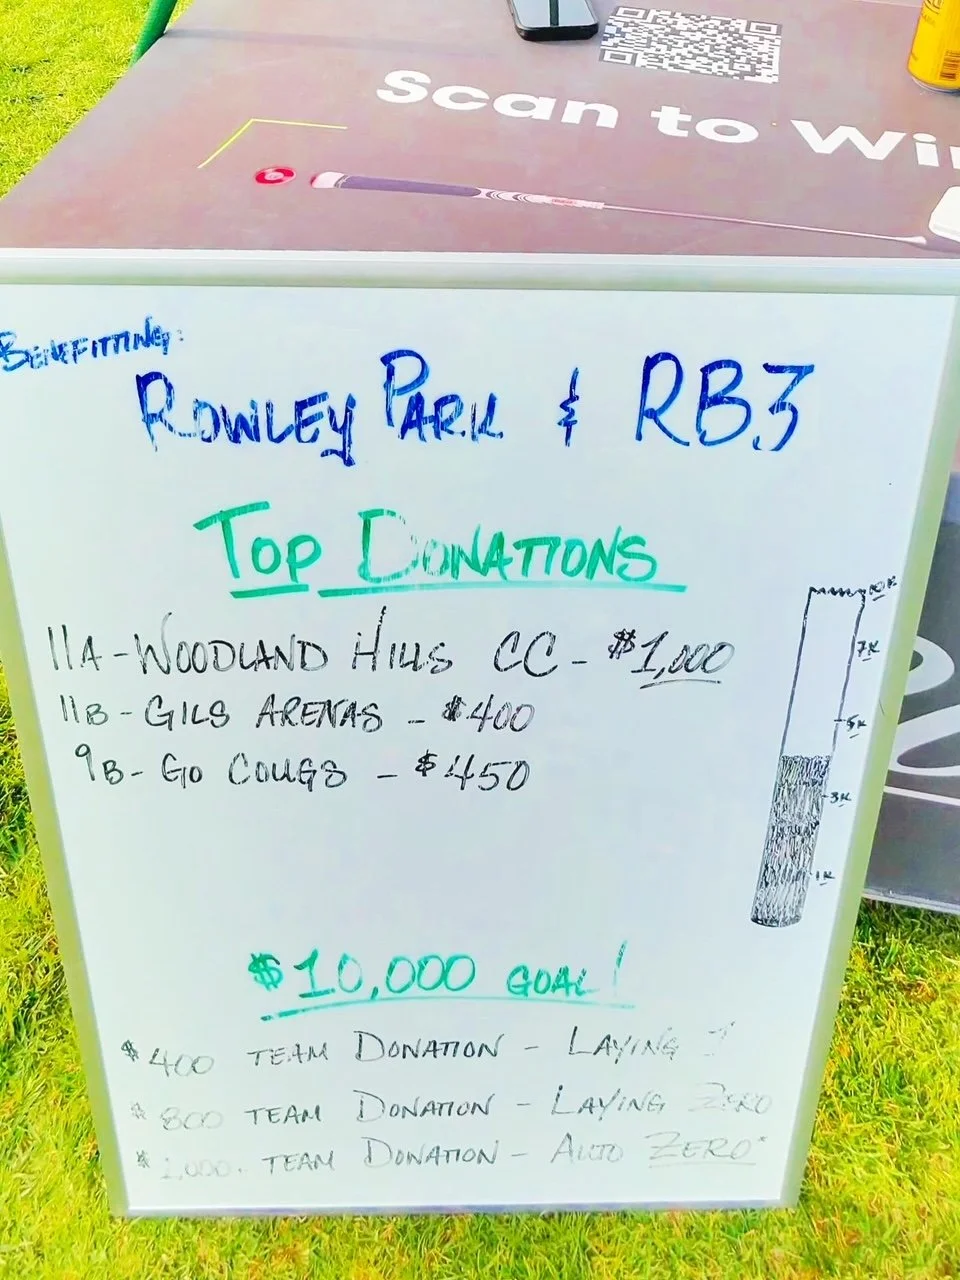 Scan to Wi
BENEFITTING:
ROWLEY PARK & RB3
TOP DONATIONS
11A - WOODLAND HILLS CC - $1,000
11B - GILS ARENAS - $400
9B - GO COUGS - $450
10K
7K
5K
3K
1K
$10,000 GOAL!
$400 TEAM DONATION - LAYING
$800 TEAM DONATION - LAYING ZERO
$1,000. TEAM DONATION - AUTO ZERO*